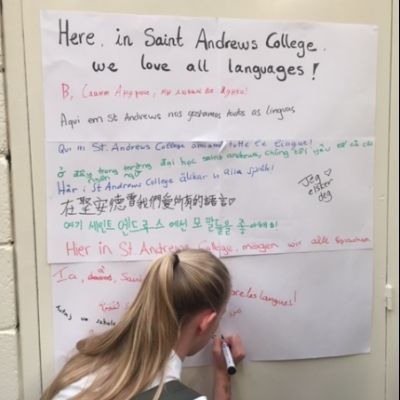 Here, in Saint Andrews College,
we love all languages!
В, Саинт Андрус, мы любим все языки!
Aqui em St Andrews nos gostamos todas as linguas
Qui in St. Andrews College amiamo tutte le lingue!
ở đây trong trường đại học saint andrews, chúng tôi yêu tất cả các
ngôn ngữ
Här i St Andrews College älskar vi alla språk!
Jeg
elsker
deg
在聖安德魯我們愛所有的語言♡
여기 세인트 앤드루스 에선 모 말들을 좋아해요!
Hier in St. Andrews College, mögen wir alle Sprachen
Ia, Saint
les langues!